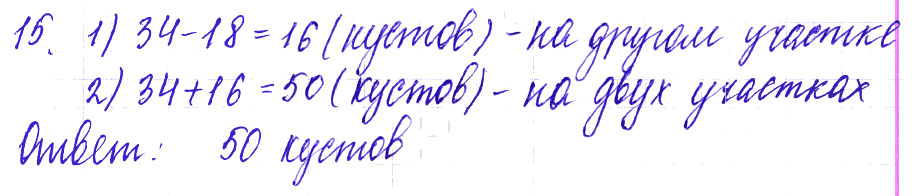 15. 1) 34-18=16 (кустов) - на другом участке
2) 34+16=50 (кустов) - на двух участках
Ответ: 50 кустов